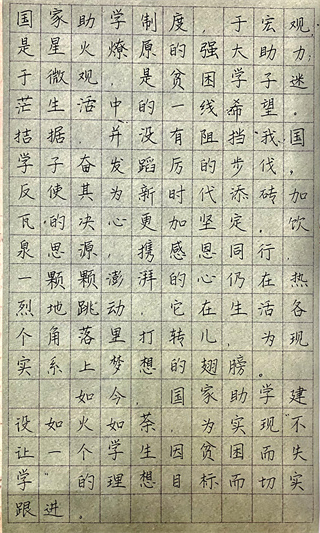 国家助学制度，于宏观
是星火燎原的强大助力；
于微观，是贫困学子迷
茫生活中的一线希望。
拮据，并没有阻挡我国
学子奋发蹈厉的步伐，
反使其为新时代添砖加
瓦的决心更加坚定。饮
泉思源，携感恩同行，
一颗颗澎湃的心仍在热
烈地跳动，它在生活各
个角落里打转儿，为现
实系上梦想的翅膀。
如今，国家助学建
设如火如荼，为实现“不
让一个学生因贫困而失
学”的理想目标而切实
跟进。